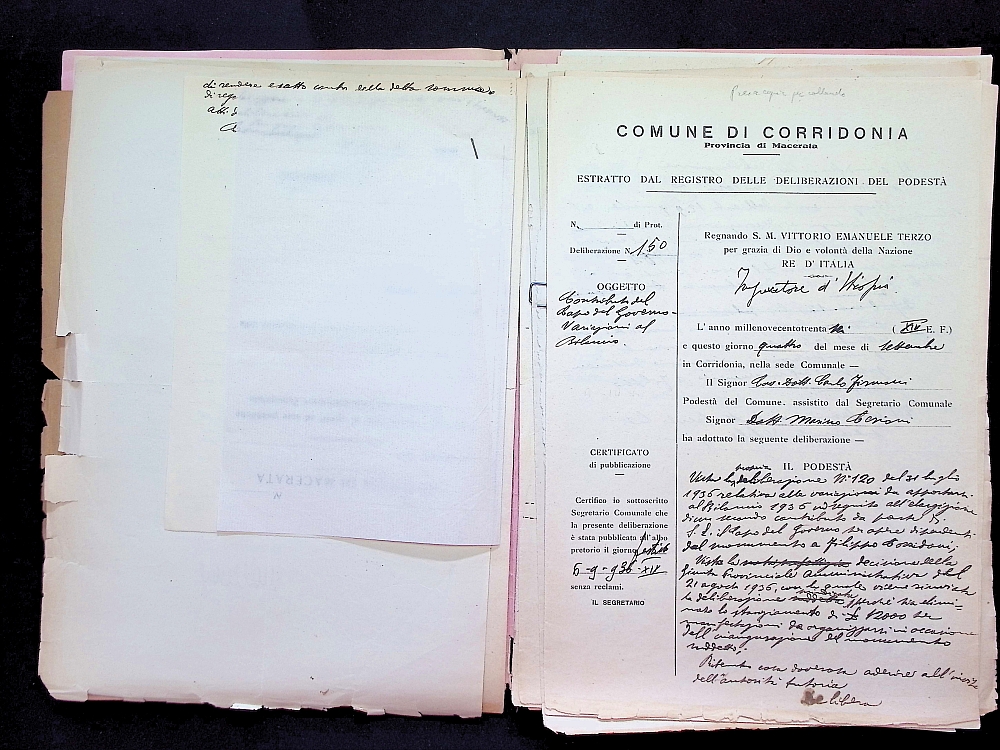 di rendere esatto conto della detta somma
di
atti
Presa copia per collaudo
COMUNE DI CORRIDONIA
Provincia di Macerata
ESTRATTO DAL REGISTRO DELLE DELIBERAZIONI DEL PODESTÀ
N. di Prot.
Deliberazione N. 150
OGGETTO
Contributo del
Capo del Governo -
Variazioni al
Bilancio.
CERTIFICATO
di pubblicazione
Certifico io sottoscritto
Segretario Comunale che
la presente deliberazione
è stata pubblicata all'albo
pretorio il giorno festivo
6-9-936-XIV
senza reclami.
IL SEGRETARIO
Regnando S. M. VITTORIO EMANUELE TERZO
per grazia di Dio e volontà della Nazione
RE D'ITALIA
Imperatore d'Etiopia.
L'anno millenovecentotrenta sei ( XIV E. F.)
e questo giorno quattro del mese di settembre
in Corridonia, nella sede Comunale —
Il Signor Cav. Dott. Carlo
Podestà del Comune assistito dal Segretario Comunale
Signor Dott. Marino
ha adottato la seguente deliberazione —
IL PODESTÀ
Vista la propria deliberazione N° 120 del 31 luglio
1936 relativa alle variazioni da apportarsi
al Bilancio 1936 in seguito all'elargizione
di un secondo contributo da parte di
S. E. il Capo del Governo per opere dipendenti
dal monumento a Filippo Corridoni;
Vista la decisione della
Giunta Provinciale Amministrativa del
21 agosto 1936, con la quale viene rinviata
la deliberazione suddetta perché sia elimi-
nato lo stanziamento di £ 12000 per
manifestazioni da organizzarsi in occasione
dell'inaugurazione del monumento
suddetto;
Ritenuto cosa doverosa aderire all'invito
dell'autorità tutoria
Delibera
MACERATA